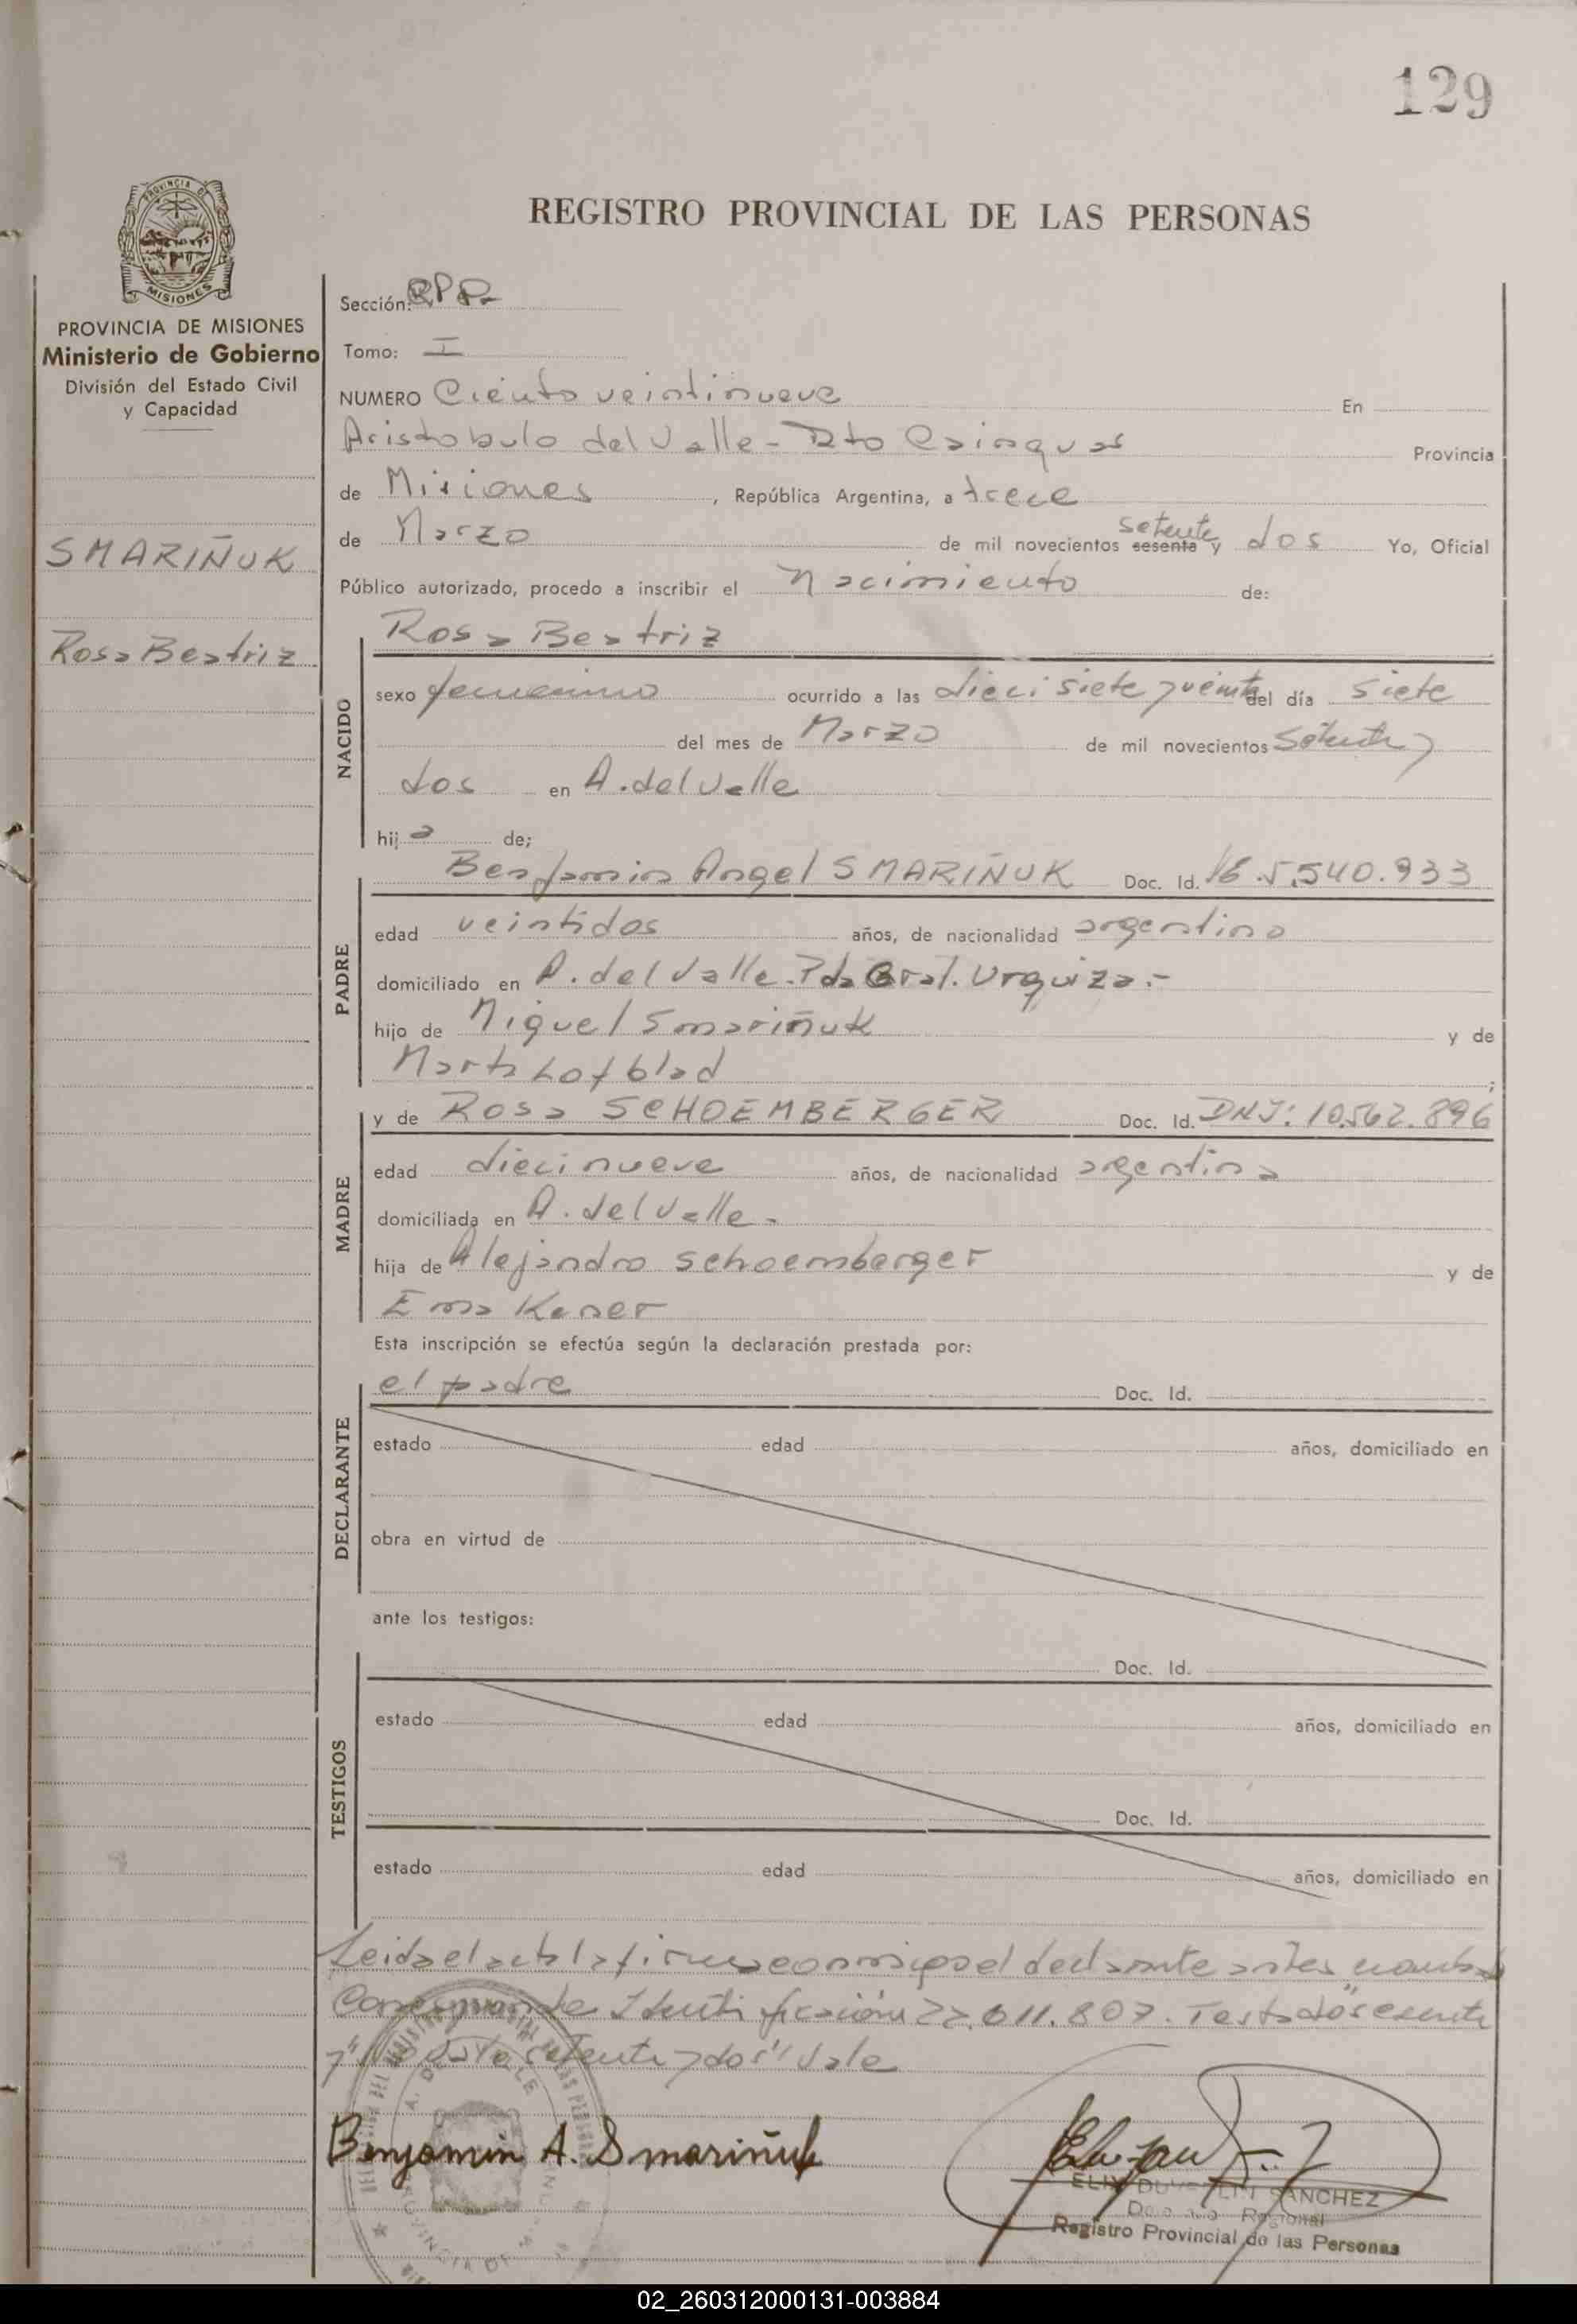 129
REGISTRO PROVINCIAL DE LAS PERSONAS
PROVINCIA DE
MISIONES
PROVINCIA DE MISIONES
Ministerio de Gobierno
División del Estado Civil
y Capacidad
SMARIÑUK
Rosa Beatriz
Sección: RPP.
Tomo: I
NUMERO Ciento veintinueve En
Aristobulo del Valle - Dto Cainguas Provincia
de Misiones, República Argentina, a trece
de Marzo de mil novecientos sesenta setenta y dos Yo, Oficial
Público autorizado, procedo a inscribir el Nacimiento de:
NACIDO
Rosa Beatriz
sexo femenino ocurrido a las dieci siete y veinte del día siete
del mes de Marzo de mil novecientos setenta y
dos en A. del Valle
hija de;
PADRE
Benjamin Angel SMARIÑUK Doc. Id. 5.540.933
edad veintidos años, de nacionalidad argentina
domiciliado en A. del Valle. Pda Gral. Urquiza.-
hijo de Miguel Smariñuk y de
Marta Lofblad ;
MADRE
y de Rosa SCHOEMBERGER Doc. Id. DNI: 10.562.896
edad dieci nueve años, de nacionalidad argentina
domiciliada en A. del Valle -
hija de Alejandro Schoemberger y de
Ema Kener
Esta inscripción se efectúa según la declaración prestada por:
DECLARANTE
el padre Doc. Id.
estado edad años, domiciliado en
obra en virtud de
ante los testigos:
TESTIGOS
Doc. Id.
estado edad años, domiciliado en
Doc. Id.
estado edad años, domiciliado en
Leida el acta la firma conmigo el declarante antes nombrado
Corresponde Identificación 22.611.807. Testado "sesenta
y" setenta y dos" Vale
Benjamin A. Smariñuk
SANCHEZ
Regional
Registro Provincial de las Personas
02_260312000131-003884